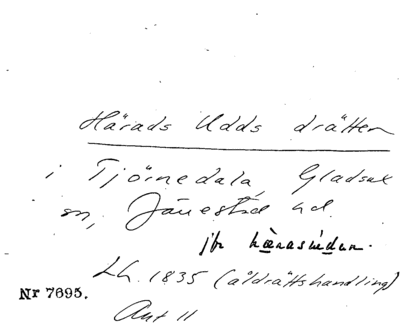 Härads Udds drätten
i Tjörnedala, Gladsax
sn, Järrestad hd.
jfr häradsudden.
Lh. 1835 (åldrättshandling)
Nr 7695.
Akt 11